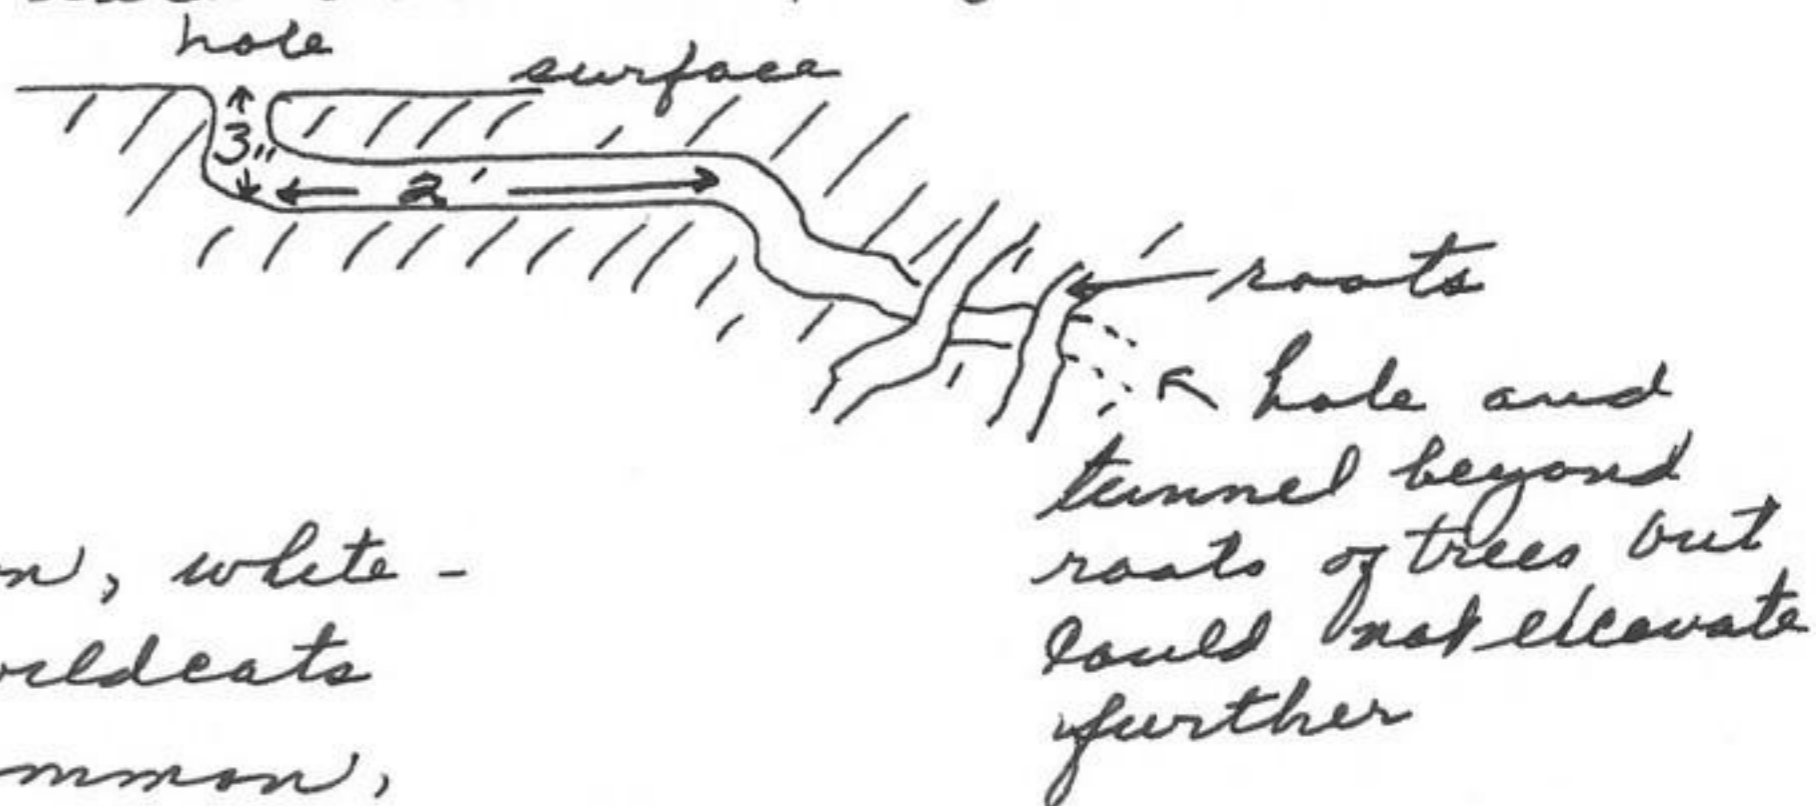 hole
surface
3"
2'
roots
hole and
tunnel beyond
roots of trees but
could not excavate
further
white -
wildcats